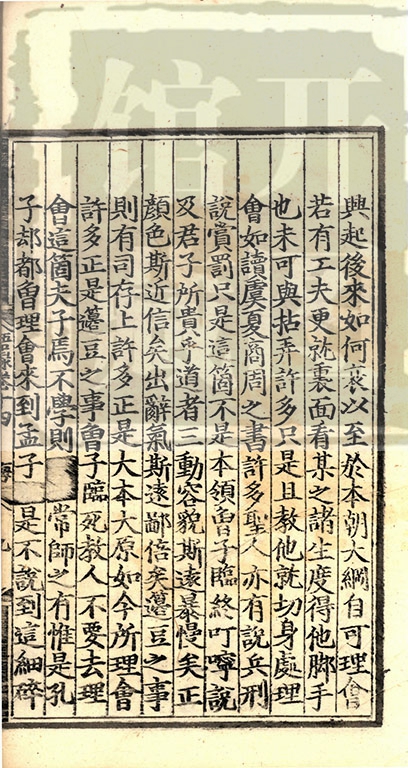 興起後來如何衰以至於本朝大綱自可理會
若有工夫更就裏面看某之諸生度得他腳手
也未可與拈弄許多只是且教他就切身處理
會如讀虞夏商周之書許多聖人亦有說兵刑
說賞罰只是這箇不是本領曾子臨終叮嚀說
及君子所貴乎道者三動容貌斯遠暴慢矣正
顏色斯近信矣出辭氣斯遠鄙倍矣籩豆之事
則有司存上許多正是大本大原如今所理會
許多正是籩豆之事曾子臨死教人不要去理
會這箇夫子焉不學則 常師之有惟是孔
子却都曾理會來到孟子 是不說到這細碎